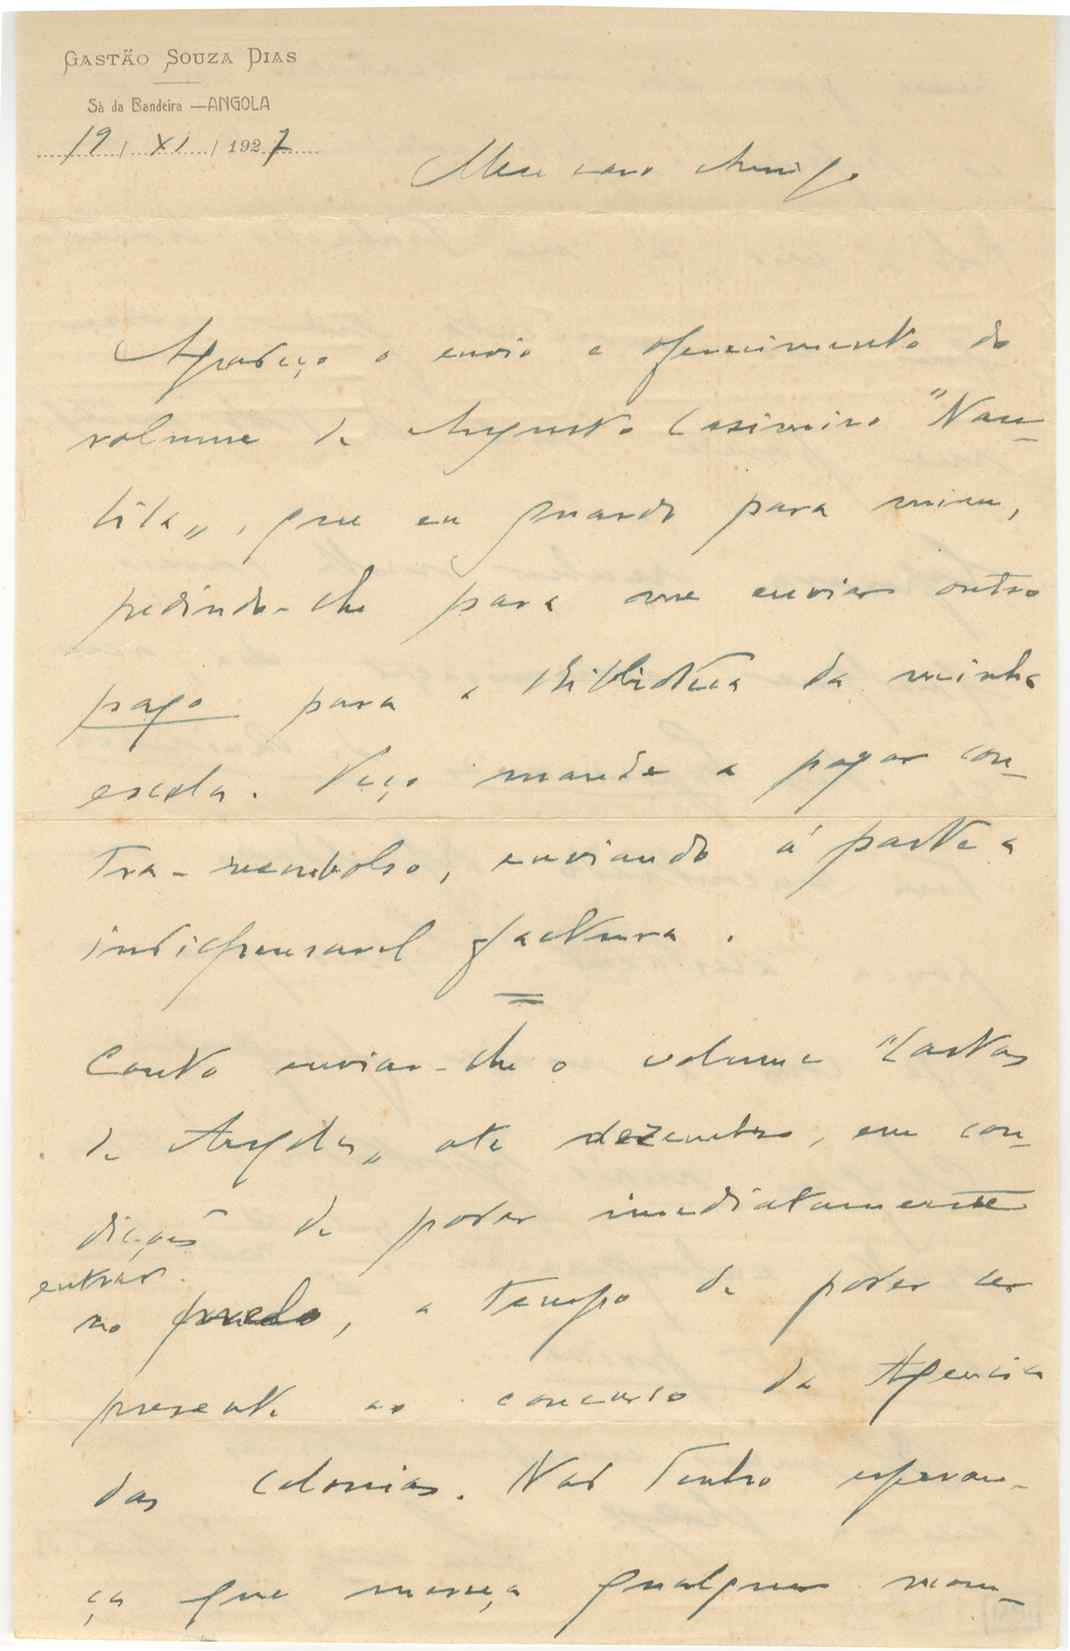 GASTÃO SOUZA DIAS
Sá da Bandeira —ANGOLA
19 / XI / 1927
Meu caro Amigo
Agradeço o envio e oferecimento do
volume de Augusto Casimiro "Nau-
lila", que eu guardo para mim,
pedindo-lhe para me enviar outro
pago para a Bibliotéca da minha
escola. Peço mande a pagar con-
tra-reembolso, enviando á parte a
indispensavel factura.
=
Conto enviar-lhe o volume "Cartas
de Angola" até dezembro, em con-
dições de poder imediatamente
entrar
no prelo, a tempo de poder ser
presente ao concurso da Agencia
das Colonias. Não tenho esperan-
ça que mereça qualquer men-